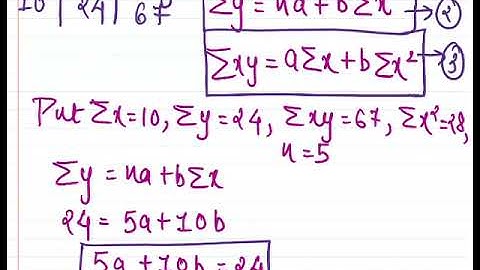 10 | 24 | 67 Σy = na + bΣx → ②
Σxy = aΣx + bΣx² → ③
Put Σx=10, Σy=24, Σxy=67, Σx²=28,
n=5
Σy = na+bΣx
24 = 5a+10b
5a+10b=24